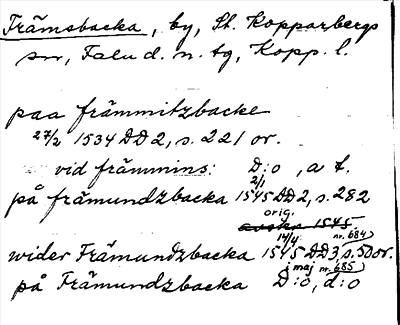 Främsbacka, by, St. Kopparbergs
sn, Falu d. n. tg, Kopp. l.
paa främmitzbacke
27/2 1534 DD 2, s. 221 or.
vid främmins: D:o, a t.
på främundzbacka 2/1 1545 DD 2, s. 282
orig.
1545
wider Främundzbacka 14/4 1545 DD 3, s. 50 or. nr. 684)
på Främundzbacka D:o, d:o (maj nr. 685)